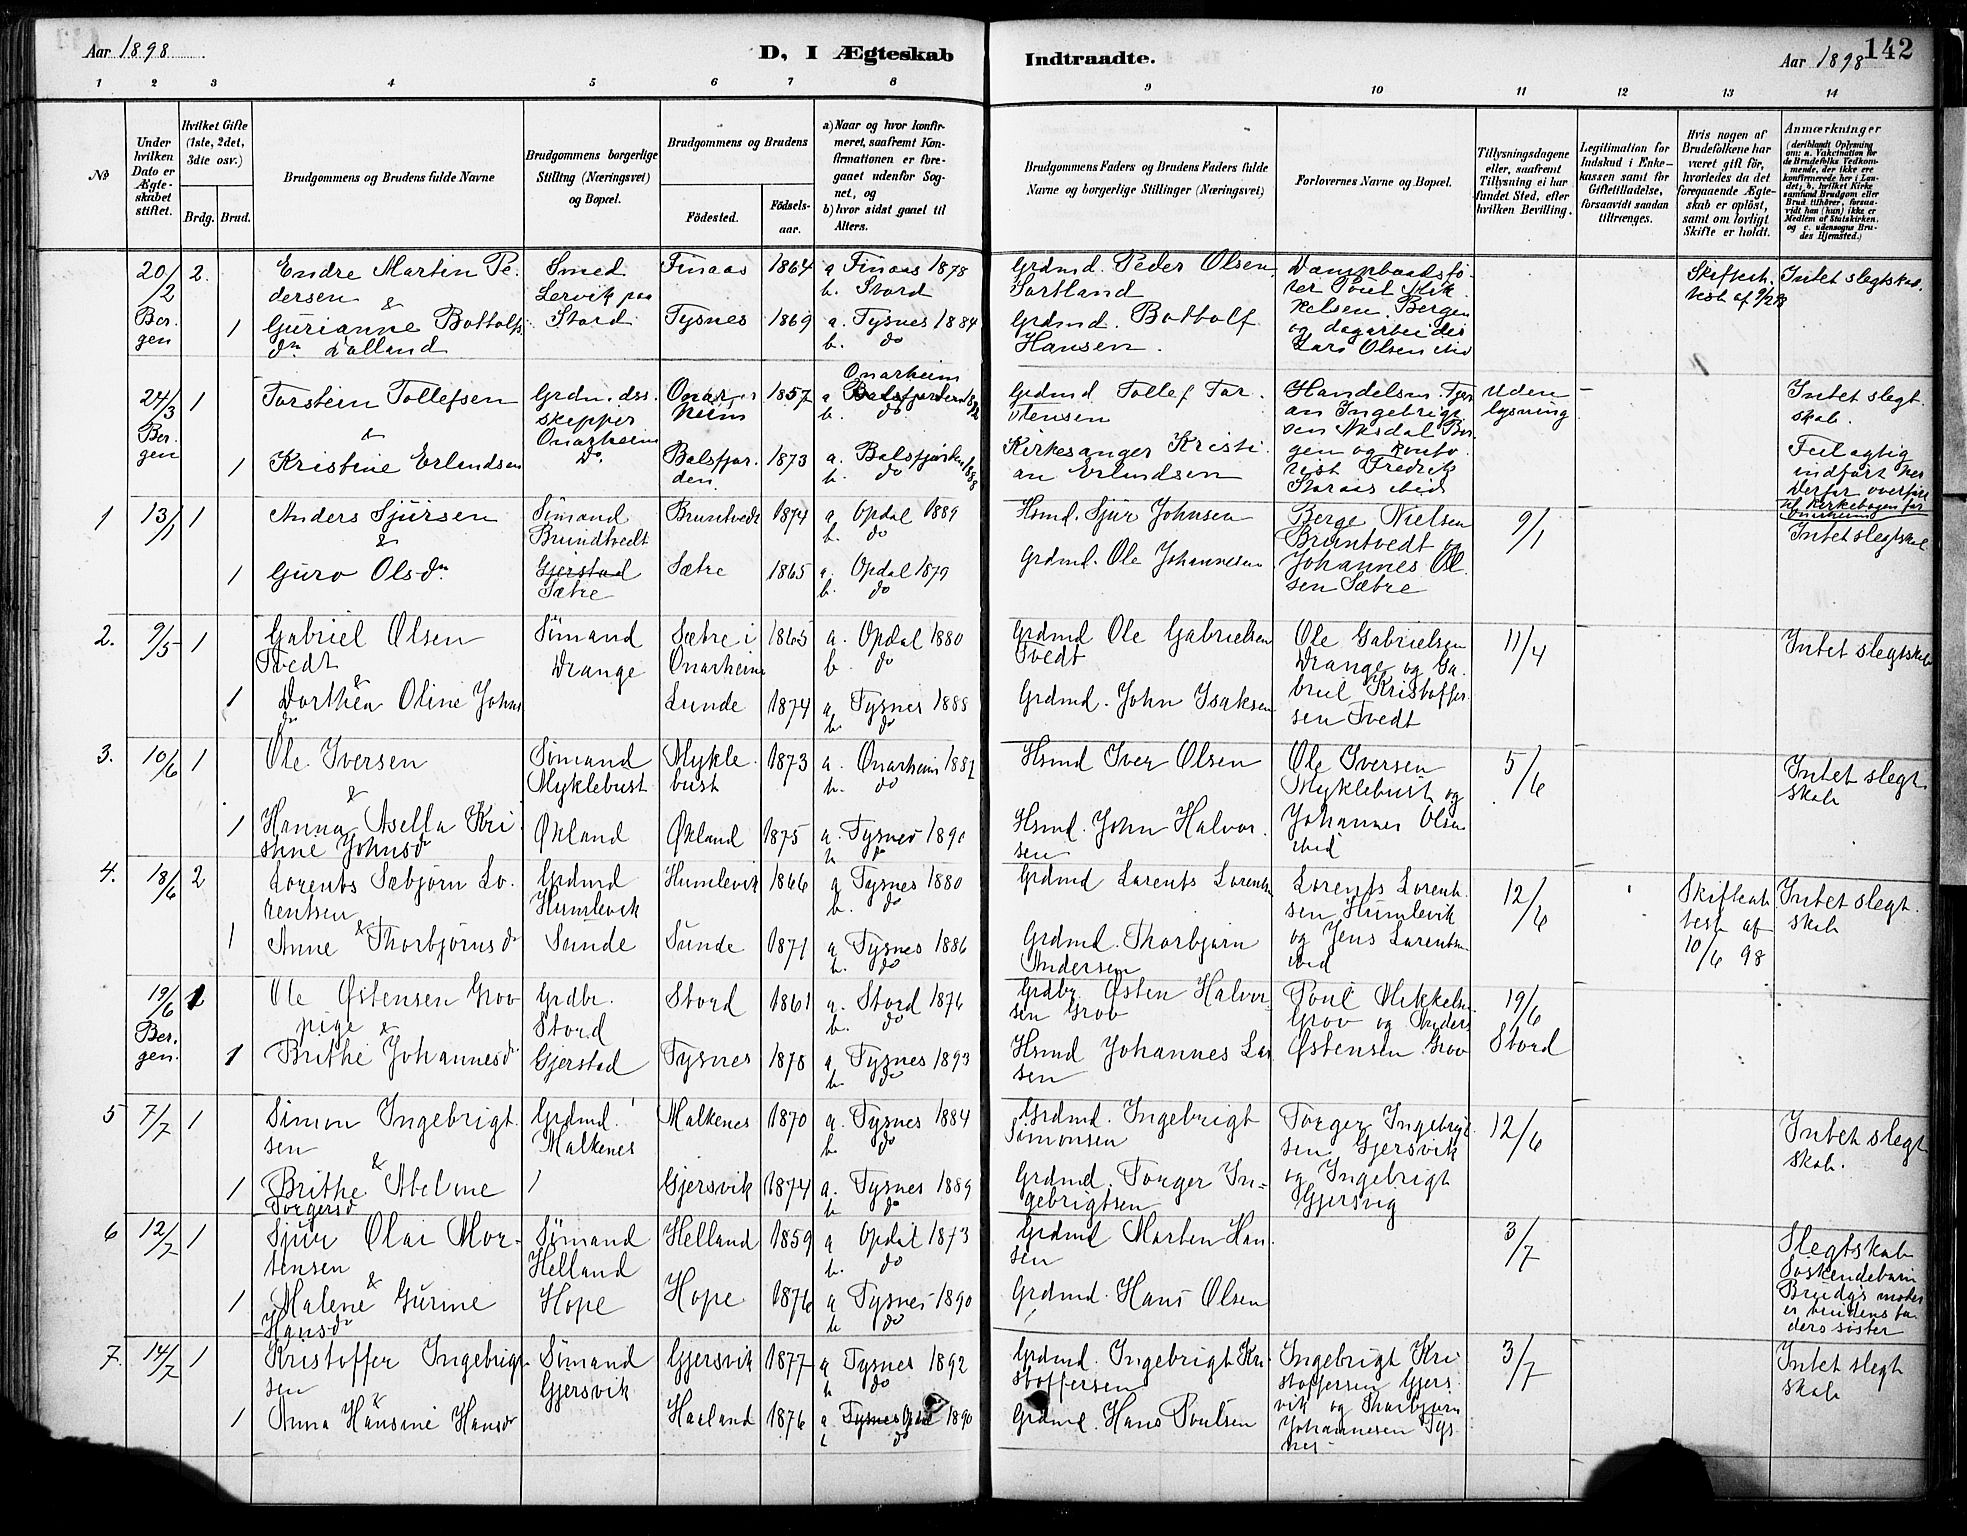 Aar 1898
D, I Ægteskab Indtraadte.
Aar 1898
142
1 2 3 4 5 6 7 8 9 10 11 12 13 14
No
Under hvilken Dato er Ægteskabet stiftet.
Hvilket Gifte (1ste, 2det, 3die osv.)
Brdg. Brud.
Brudgommens og Brudens fulde Navne
Brudgommens borgerlige Stilling (Næringsvei) og Bopæl.
Brudgommens og Brudens
Fødested.
Fødselsaar.
a) Naar og hvor konfirmeret, saafremt Konfirmationen er foregaaet udenfor Sognet, og
b) hvor sidst gaaet til Alters.
Brudgommens Faders og Brudens Faders fulde Navne og borgerlige Stillinger (Næringsvei)
Forlovernes Navne og Bopæl.
Tillysningsdagene eller, saafremt Tillysning ei har fundet Sted, efter hvilken Bevilling.
Legitimation for Indskud i Enkekassen samt for Giftetilladelse, forsaavidt saadan tiltrænges.
Hvis nogen af Brudefolkene har været gift før, hvorledes da det foregaaende Ægteskab er opløst, samt om lovligt Skifte er holdt.
Anmærkninger (deriblandt Oplysning om: a. Vakcination for de Brudefolks Vedkommende, der ikke ere konfirmerede her i Landet; b. hvilket Kirkesamfund Brudgom eller Brud tilhører, forsaavidt han (hun) ikke er Medlem af Statskirken, og c. udensogns Brudes Hjemsted.)
20/2 Bergen 2. Endre Martin Pedersen & Smed Lervik paa Stord Finaas 1864 a Finaas 1878 b. Stord Grdmd. Peder Olsen Sortland
1 Gurianne Bottolfs dn Dalland Tysnes 1869 a. Tysnes 1884 b. do Grdmd. Bottolf Hansen.
Dampbaadsfører Poul Mikkelsen Bergen og dagarbeider Lars Olsen ibid
Intet slegtskab.
24/3 Bergen 1 Torstein Tollefsen & Onarheim 1857 a Onarheim b. do Grdmd Tollef Torstensen
1 Kristine Erlendsen do Balsfjorden 1873 a. Balsfjorden 1888 b. do Kirkesanger Kristian Erlendsen
Uden lysning
Intet slegtskab.
Feilagtig indført her Derfor overført til kirkebogen for Onarheim
1 13/1 1 Anders Sjursen & Sømand Brundtvedt Bruntvedt 1874 a. Opdal 1889 b. do Hsmd. Sjur Johnsen
1 Guro Olsdn Gjerstad Sætre Sætre 1865 a. Opdal 1879 b. do Grdmd. Ole Johannesen
Berge Nielsen Bruntvedt og Johannes Olsen Sætre
9/1
Intet slegtskab
2. 9/5 1 Gabriel Olsen Tvedt & Sømand Drange Sætre i Onarheim 1865 a. Opdal 1880 b. do Grdmd Ole Gabrielsen Tvedt
1 Dorthea Oline Johns d Lunde 1874 a. Tysnes 1888 b. do Grdmd. John Isaksen
Ole Gabrielsen Drange og Gabriel Kristoffersen Tvedt
11/4
Intet slegtskab
3. 10/6 1 Ole Iversen & Sømand Myklebust Myklebust 1873 a. Onarheim 1887 b. do Hsmd Iver Olsen
1 Hanna Asella Kristine Johnsd Økland Økland 1875 a. Tysnes 1890 b do Hsmd. John Halvorsen
Ole Iversen Myklebust og Johannes Olsen ibid
5/6
Intet slegtskab
4. 18/6 2 Lorents Sæbjørn Lorentsen & Grdmd Humlevik Humlevik 1866 a Tysnes 1880 b. do Grdmd Lorents Lorentsen
1 Anne Thorbjørnsd Sunde Sunde 1871 a Tysnes 1886 b. do Grdmd. Thorbjørn Andersen
Lorents Lorentsen Humlevik og Jens Lorentsen ibid
12/6
Skifteattest af 10/6 98
Intet slegtskab
19/6 Bergen. Ole Østensen Grov & Grdbr. Stord Stord 1861 a. Stord 1876 b. do Grdbr. Østen Halvorsen Grov
1 pige Brithe Johannesd Gjerstad Tysnes 1878 a Tysnes 1893 b. do Hsmd Johannes Larsen
Poul Mikkelsen Grov og Anders Østensen Grov
19/6 Stord
5 7/7 1 Simon Ingebrigtsen & Grdmd. Malkenes Malkenes 1870 a. Tysnes 1884 b. do Grdmd. Ingebrigt Simonsen
1 Brithe Abeline Torgersd Gjersvik 1874 a. Tysnes 1889 b do Grdmd. Torger Ingebrigtsen
Torger Ingebrigtsen Gjersvik og Ingebrigt Gjersvig
12/6
Intet slegtskab.
6 12/7 1 Sjur Olai Mortensen & Sømand Helland Helland 1859 a Opdal 1873 b. do Grdmd Morten Hansen
1 Malene Gurine Hansd Hope Hope 1876 a Tysnes 1890 b do Grdmd. Hans Olsen
3/7
Slegtskab Søskendebarn Brudgs moder er brudens faders søster
7. 14/7 1 Kristoffer Ingebrigtsen & Sømand Gjersvik Gjersvik 1877 a Tysnes 1892 b do Grdmd. Ingebrigt Kristoffersen
1 Anna Hansine Hansd Harland 1876 a Tysnes Opdal 1890 do Grdmd. Hans Poulsen
Ingebrigt Kristoffersen Gjersvik og Thorbjørn Johannesen Tysnes
3/7
Intet slegtskab